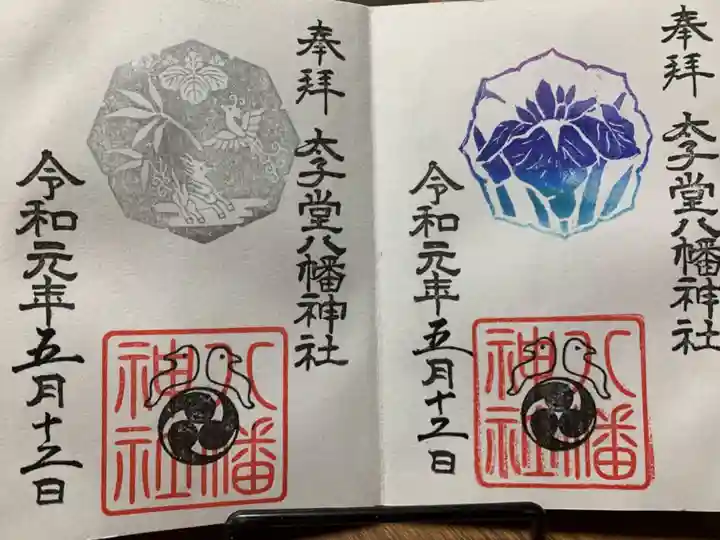 奉拝 太子堂八幡神社
八幡神社
令和元年五月十二日
奉拝 太子堂八幡神社
八幡神社
令和元年五月十二日